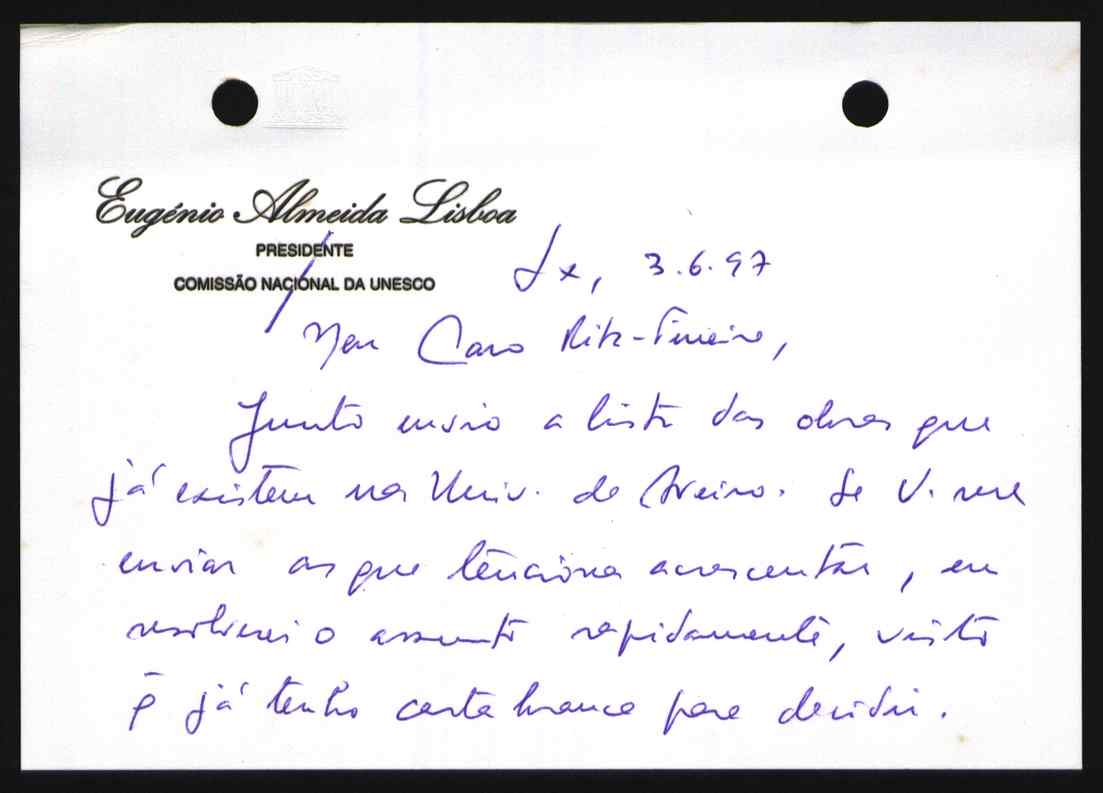 Eugénio Almeida Lisboa
PRESIDENTE
COMISSÃO NACIONAL DA UNESCO
Lx, 3.6.97
Meu Caro
Junto envio a lista das obras que
já existem na Univ. de Aveiro. Se V. me
enviar as que tenciona acrescentar, eu
resolverei o assunto rapidamente, visto
q̄ já tenho carta branca para decidir.